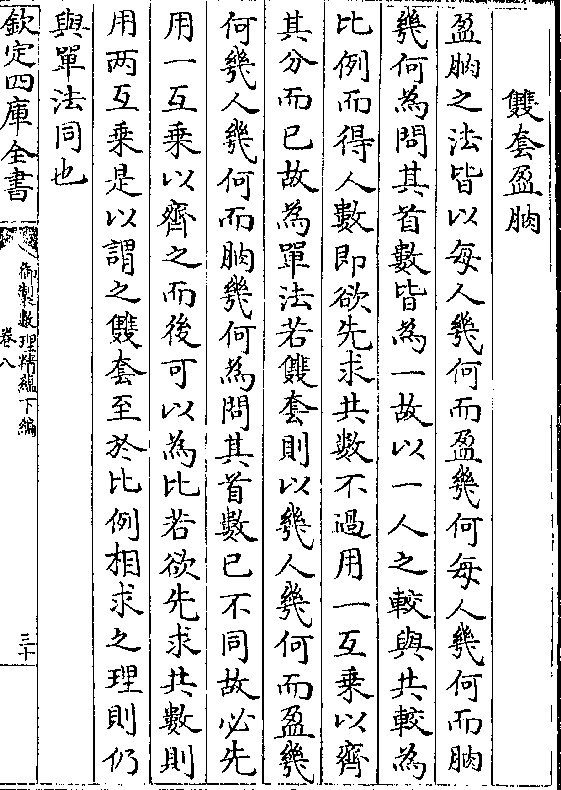 雙套盈朒
盈朒之法皆以每人幾何而盈幾何每人幾何而朒
幾何為問其首數皆為一故以一人之較與共較為
比例而得人數即欲先求共數不過用一互乗以齊
其分而已故為單法若雙套則以幾人幾何而盈幾
何幾人幾何而朒幾何為問其首數已不同故必先
用一互乗以齊之而後可以為比若欲先求共數則
用两互乗是以謂之雙套至於比例相求之理則仍
與單法同也
欽定四庫全書
御製數理精藴下編
卷八
三十